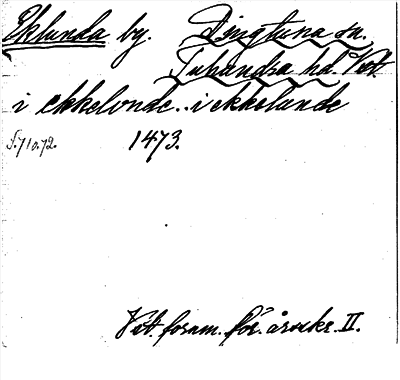 Eklunda by. Dingtuna sn.
Tuhundra hd. Vstm.
i ekkelonde.. i ekkolunde
1473.
Vst. fornm. för. årsskr. II.